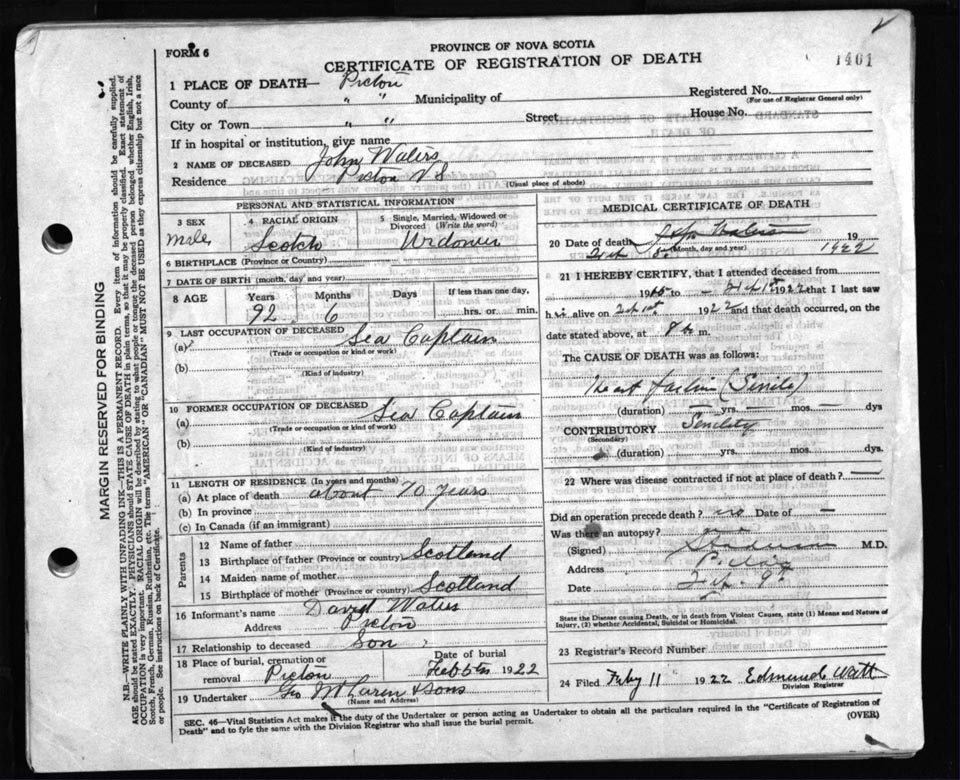 FORM 6
PROVINCE OF NOVA SCOTIA
CERTIFICATE OF REGISTRATION OF DEATH
1401
1 PLACE OF DEATH— Pictou
Registered No.
(For use of Registrar General only)
County of " " Municipality of
City or Town " " Street House No.
If in hospital or institution, give name
2 NAME OF DECEASED John Waters
Residence Pictou N S
(Usual place of abode)
PERSONAL AND STATISTICAL INFORMATION
3 SEX Male
4 RACIAL ORIGIN Scotch
5 Single, Married, Widowed or Divorced (Write the word) Widower
6 BIRTHPLACE (Province or Country)
7 DATE OF BIRTH (month, day and year)
8 AGE Years 92 Months 6 Days If less than one day, hrs. or min.
9 LAST OCCUPATION OF DECEASED
(a) Sea Captain
(Trade or occupation or kind or work)
(b)
(Kind of industry)
10 FORMER OCCUPATION OF DECEASED
(a) Sea Captain
(Trade or occupation or kind of work)
(b)
(Kind of industry)
11 LENGTH OF RESIDENCE (In years and months)
(a) At place of death about 70 years
(b) In province
(c) In Canada (if an immigrant)
Parents
12 Name of father
13 Birthplace of father (Province or country) Scotland
14 Maiden name of mother
15 Birthplace of mother (Province or country) Scotland
16 Informant's name David Waters
Address Pictou
17 Relationship to deceased Son
18 Place of burial, cremation or removal Pictou
Date of burial Feb 5th 1922
19 Undertaker Geo McLaren & Sons
(Name and Address)
MEDICAL CERTIFICATE OF DEATH
20 Date of death 19
(Month, day and year) 1922
21 I HEREBY CERTIFY, that I attended deceased from
19 to 1922 that I last saw
h alive on 192 2 and that death occurred, on
date stated above, at 8 m.
The CAUSE OF DEATH was as follows:
Heart failure (Senile)
(duration) yrs. mos. dys
CONTRIBUTORY Senility
(Secondary)
(duration) yrs. mos. dys.
22 Where was disease contracted if not at place of death? —
Did an operation precede death? no Date of —
Was there an autopsy? no
(Signed) M.D.
Address Pictou
Date
State the Disease causing Death, or in death from Violent Causes, state (1) Means and Nature of Injury, (2) whether Accidental, Suicidal or Homicidal.
23 Registrar's Record Number
24 Filed Feby 11 1922 Edmund Watt
Division Registrar
SEC. 46—Vital Statistics Act makes it the duty of the Undertaker or person acting as Undertaker to obtain all the particulars required in the "Certificate of Registration of
Death" and to fyle the same with the Division Registrar who shall issue the burial permit.
(OVER)
MARGIN RESERVED FOR BINDING
N.B.—WRITE PLAINLY WITH UNFADING INK—THIS IS A PERMANENT RECORD. Every item of information should be carefully supplied.
AGE should be stated EXACTLY. PHYSICIANS should STATE CAUSE OF DEATH in plain terms, so that it may be properly classified. Exact statement of
OCCUPATION is very important. RACIAL ORIGIN will be described by stating to what people or tongue the deceased person belonged whether English, Irish,
Scotch, French, German, Russian, Ruthenian, etc. The terms "AMERICAN" OR "CANADIAN" MUST NOT BE USED as they express citizenship but not a race
or people. See instructions on back of Certificate.